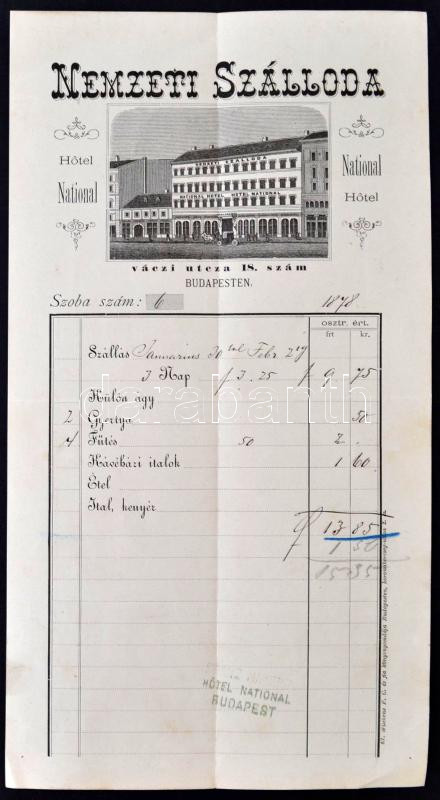 NEMZETI SZÁLLODA
Hôtel
National
National
Hôtel
NEMZETI SZÁLLODA
NATIONAL HOTEL HOTEL NATIONAL
váczi utcza 18. szám
BUDAPESTEN.
Szoba szám: 6 1878
osztr. ért.
frt kr.
Szállás Januarius 30tól Febr 2ig
3 Nap f 3.25 f 9 75
Külön ágy
2 Gyertya 50
4 Fűtés 50 2 .
Kávéházi italok 1 60
Étel
Ital, kenyér
f 13 85
1 50
15.35
darabanth
HÔTEL NATIONAL
BUDAPEST